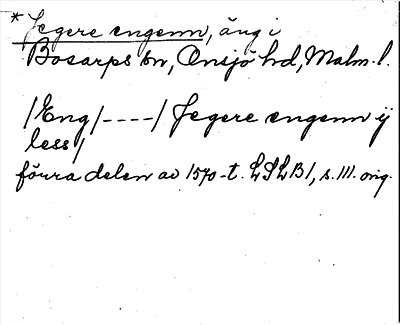 * Jegere engenn, äng i
Bosarps sn, Onsjö hd, Malm. l.
/Eng/----/ Jegere engenn ij
less/
förra delen av 1570-t. LSLB1, s. 111. orig.